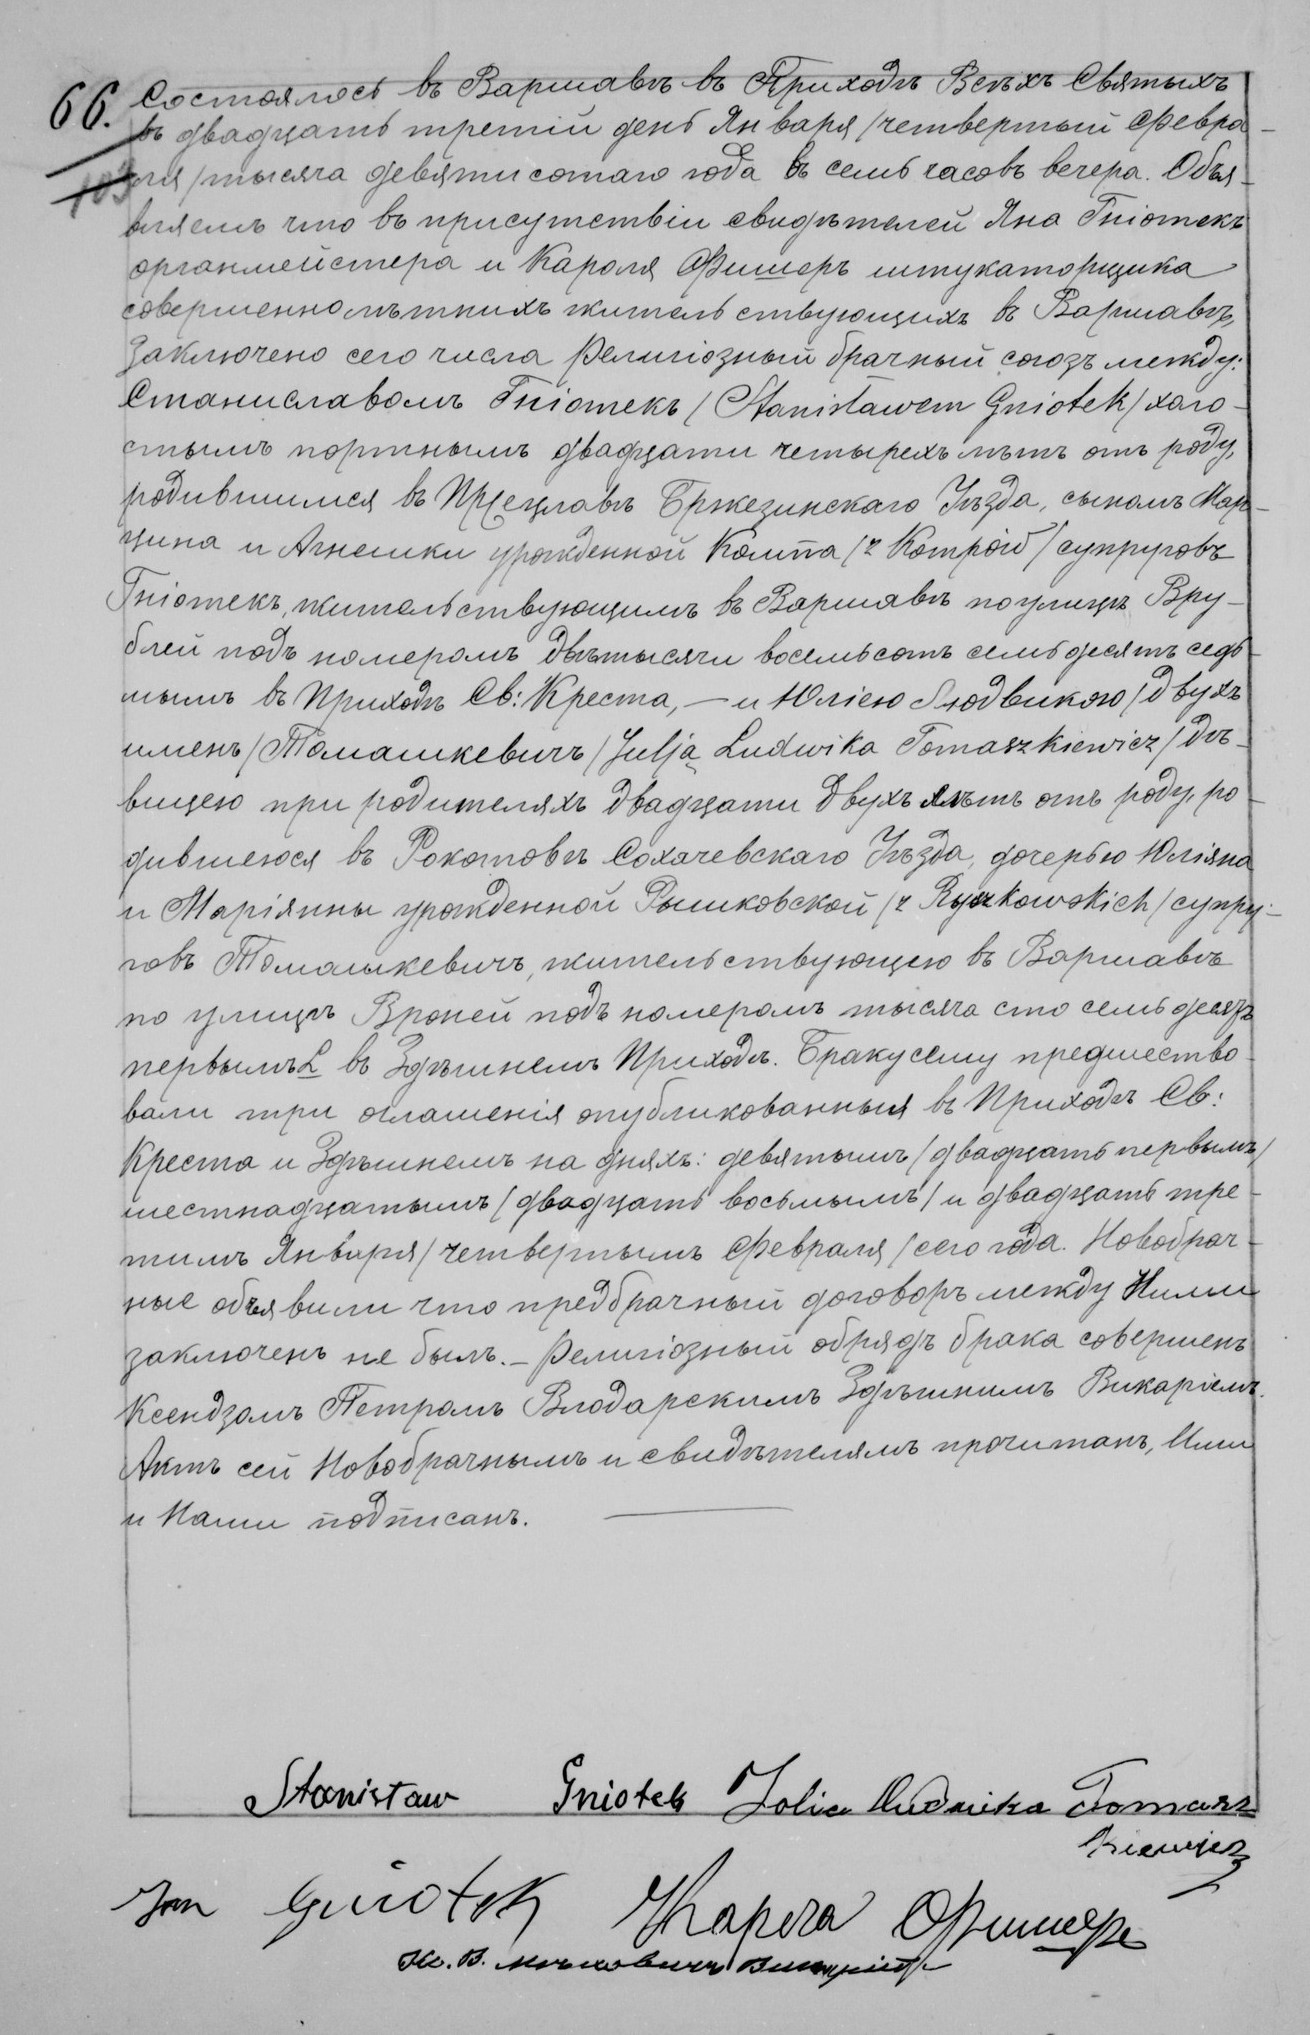 66.
Состоялось въ Варшавѣ въ Приходѣ Всѣхъ Святыхъ
въ двадцать третій день Января /четвертый Февра-
ля/ тысяча девятисотаго года въ семь часовъ вечера. Объя-
вляемъ что въ присутствіи свидѣтелей Яна Гніотекъ
органмейстера и Кароля Фишеръ штукаторщика
совершеннолѣтнихъ жительствующихъ въ Варшавѣ,
заключено сего числа религіозный брачный союзъ между:
Станиславомъ Гніотекъ /Stanisławem Gniotek/ холо-
стымъ портнымъ двадцати четырехъ лѣтъ отъ роду,
родившимся въ Прецлавѣ Бржезинскаго Уѣзда, сыномъ Мар-
цина и Агнешки урожденной Компа /z Kompów/ супруговъ
Гніотекъ, жительствующимъ въ Варшавѣ по улицѣ Вру-
блей подъ номеромъ двѣтысячи восемьсотъ семьдесятъ седь-
мымъ въ Приходѣ Св: Креста, — и Юліею Людвикою /двухъ
именъ/ Томашкевичъ /Julją Ludwiką Tomaszkiewicz/ дѣ-
вицею при родителяхъ двадцати двухъ лѣтъ отъ роду, ро-
дившеюся въ Рокотовѣ Сохачевскаго Уѣзда, дочерью Юліяна
и Маріянны урожденной Рышковской /z Ryszkowskich/ супру-
говъ Томашкевичъ, жительствующею въ Варшавѣ
по улицѣ Вроней подъ номеромъ тысяча сто семьдесятъ
первымъ L въ Здѣшнемъ Приходѣ. Браку сему предшество-
вали три оглашенія опубликованныя въ Приходѣ Св:
Креста и Здѣшнемъ на дняхъ: девятымъ /двадцать первымъ/
шестнадцатымъ /двадцать восьмымъ/ и двадцать тре-
тимъ Января /четвертымъ Февраля/ сего года. Новобрач-
ные объявили что предбрачный договоръ между Ними
заключенъ не былъ. — Религіозный обрядъ брака совершенъ
Ксендзомъ Петромъ Влодарскимъ Здѣшнимъ Викаріемъ.
Актъ сей Новобрачнымъ и свидѣтелямъ прочитанъ, Ими
и Нами подписанъ.
Stanisław Gniotek Jolia Ludwika Tomasz
kiewicz
Jan Gniotek Кароль Фишеръ